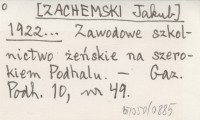 [ZACHEMSKI Jakub]
1922... Zawodowe szkol-
nictwo żeńskie na szero-
kiem Podhalu. — Gaz.
Podh. 10, nr 49.